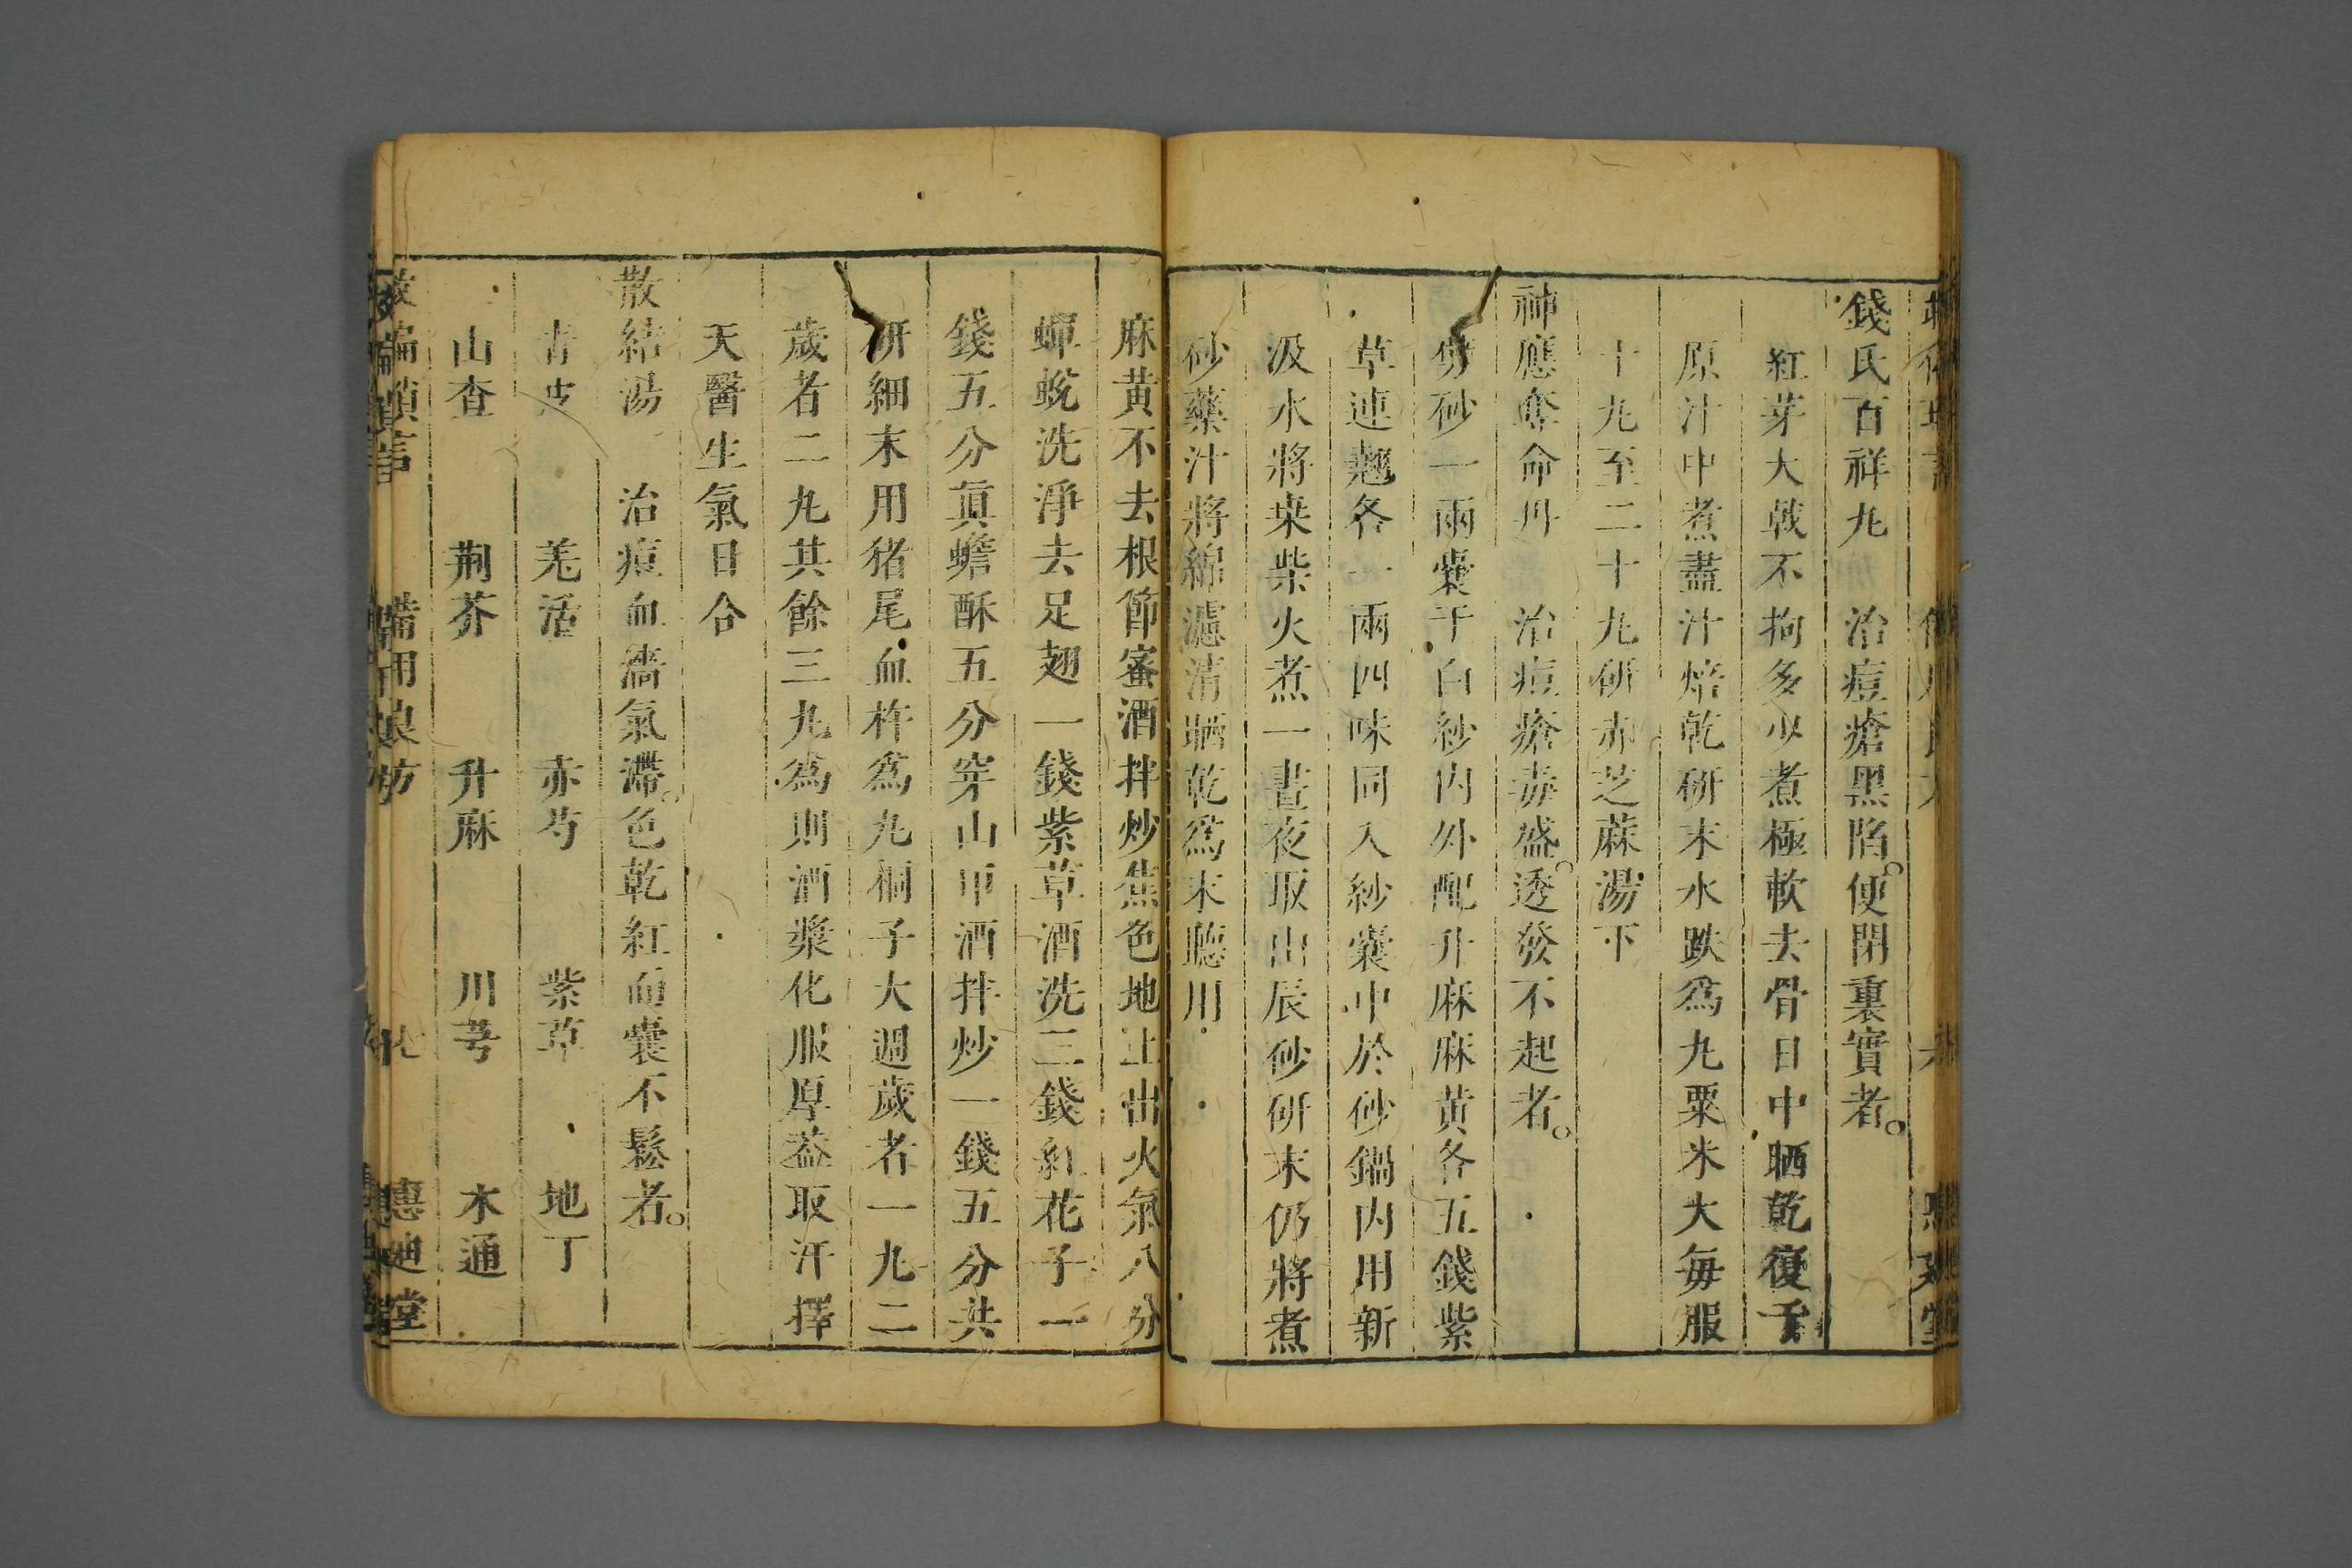 錢氏百祥丸 治痘瘡黑陷。便閉裏實者。
紅芽大戟不拘多少煮極軟去骨日中晒乾復于
原汁中煮盡汁焙乾研末水跌為丸粟米大每服
十丸至二十丸研赤芝蔴湯下
神應奪命丹 治痘瘡毒盛。透發不起者。
砂一兩囊于白紗內外配升麻麻黄各五錢紫
草連翹各一兩四味同入紗囊中於砂鍋內用新
汲水將桒柴火煮一晝夜取出辰砂研末仍將煮
砂藥汁將綿濾清晒乾為末聽用
麻黄不去根節蜜酒拌炒焦色地上出火氣八分
蟬蛻洗淨去足翅一錢紫草酒洗二錢紅花子一
錢五分眞蟾酥五分穿山甲酒拌炒一錢五分共
研細末用猪尾血杵為丸桐子大週歲者一丸二
歲者二丸其餘三丸為則酒漿化服厚葢取汗擇
天醫生氣日合
散結湯 治痘血濇氣滯。色乾紅而囊不鬆者。
青皮 羗活 赤芍 紫草 地丁
山查 荆芥 升麻 川芎 木通
救偏瑣言 備用良方 七 惠迪堂